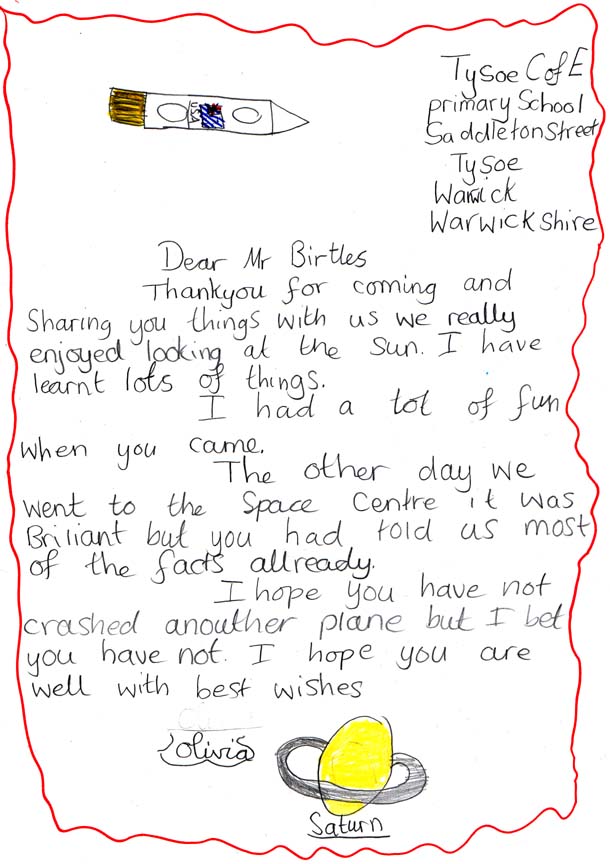 USA
Tysoe C of E
primary School
Saddleton Street
Tysoe
Warwick
Warwickshire
Dear Mr Birtles
Thankyou for coming and
Sharing you things with us we really
enjoyed looking at the Sun. I have
learnt lots of things.
I had a lot of fun
when you came.
The other day we
went to the Space Centre it was
Briliant but you had told us most
of the facts allready.
I hope you have not
crashed anouther plane but I bet
you have not. I hope you are
well with best wishes
Olivia
Saturn